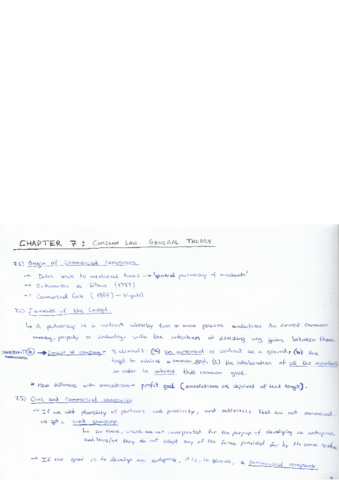 CHAPTER 7 : COMPANY LAW. GENERAL THEORY
7.1) Origin of Commercial Companies
→ Dates back to medieval times → "general partnership of merchants"
→ Ordinances of Bilbao (1737)
→ Commercial Code (
7.2) Elements of the Concept
↳ A partnership is a contract whereby two or more persons in common
money, property or industry, with the intention of any gains between them
→ Concept of company → 3 elements: (A) an agreement or contract as a ground; (B) the
target to achieve a common goal, (C) the collaboration of all the members
in order to achieve that common goal.
* Main difference with associations → profit goal (associations are deprived of that target).
7.3) Civil and commercial companies
→ If we add plurality of partners and proximity, and activities that are not commercial,
we get a civil company
↳ So these, which are not incorporated for the purpose of developing an enterprise,
and therefore they do not adopt any of the forms provided for by the comm. code
→ If the goal is to develop an enterprise, it is, in principle, a commercial company